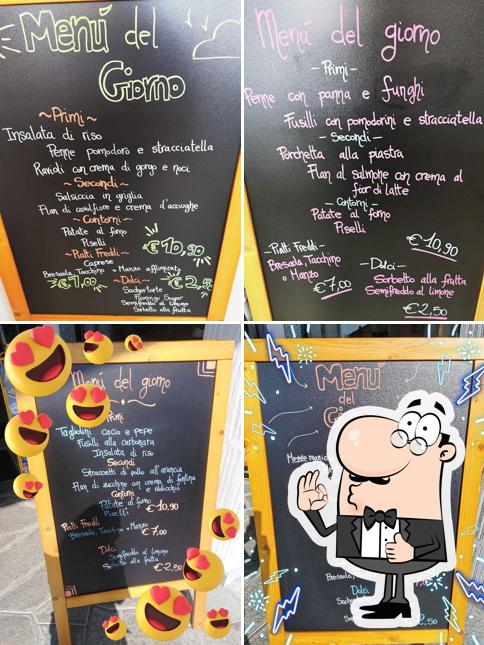 Menú del
Giorno
~Primi~
Insalata di riso
Penne pomodoro e stracciatella
Ravioli con crema di gorgo e noci
~Secondi~
Salsiccia in griglia
Flan di cavolfiore e crema d'acciughe
~Contorni~
Patate al forno
Piselli
€10,90
~Piatti Freddi~
Caprese
Bresaola, Tacchino ~ Manzo affumicato
€7,00
~Dolci~
€2,5
Sachertorte
Flamingo Sugar
Semifreddo al limone
Sorbetto alla frutta
Menú del giorno
-Primi-
Penne con panna e funghi
Fusilli con pomodorini e stracciatella
-Secondi-
Porchetta alla piastra
Flan al salmone con crema al
fior di latte
-Contorni-
Patate al forno
Piselli
€10,90
-Piatti Freddi-
Bresaola, Tacchino
o Manzo
€7,00
-Dolci-
Sorbetto alla frutta
Semifreddo al limone
€2,50
Menú del giorno
Primi
Tagliolini cacio e pepe
Fusilli alla carbonara
Insalata di riso
Secondi
Straccetti di pollo all'arancia
Flan di zucchine con crema di fontina
Contorni
Patate al forno
Piselli
€10,90
Piatti Freddi
Bresaola, Tacchino, Manzo
€7,00
Dolci
Semifreddo al limone
Sorbetto alla frutta
€2,50
Menú
del
Mezze manic
Bresaola,
Dolci
2,50